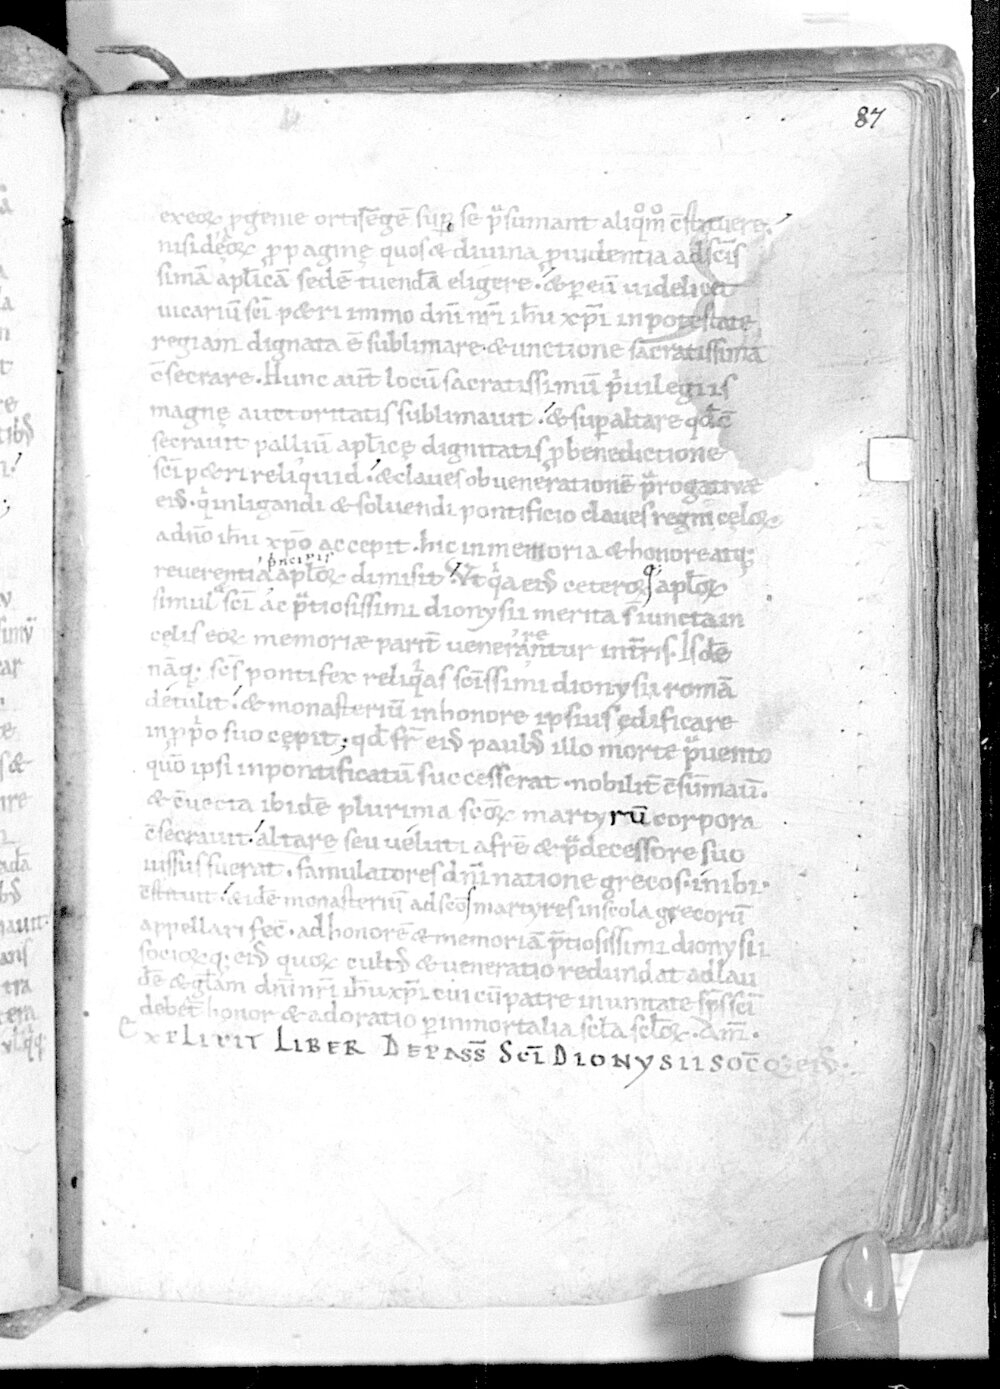 87
exeoꝝ ꝓgenie ortisēgē suꝑ se p̄sumant aliq̊m̊ c̄stituere.
nisi deeoꝝ ꝓpagine quos & diuina ꝓuidentia adsc̄is
simā aplicā sedē tuendā eligere. & ꝑ eū uidelicet
uicariū sc̄i p&ri immo dn̄i nr̄i ih̄u xp̄i in potestatē
regiam dignata ē sublimare. & unctione sacratissima
c̄secrare. Hunc aut̄ locū sacratissimū p̄uilegiis
magnę auctoritatis sublimauit. & suꝑ altare qd̄ c̄
secrauit palliū aplicę dignitatis ꝓ benedictione
sc̄i p&ri reliquid. & claues ob uenerationē p̄rogatiuæ
eiꝰ. qͥ in ligandi & soluendi pontificio claues regni cęloꝝ
a dn̄o ih̄u xp̄o accepit. hic in memoria & honore atq;
principis
reuerentia aploꝝ dimisit. Vt qͥa eiꝰ ceteroꝝq; aploꝝ
simul sc̄i ac p̄tiosissimi dionysii merita s̄ iuncta in
cęlis eoꝝ memoriæ parit̄ uenerarentur in tr̄ris. Isdē
nāq; sc̄s pontifex reliqͥas sc̄issimi dionysii romā
detulit. & monasteriū in honore ipsius ędificare
in ꝓpͥo suo cępit; qd̄ fr̄ eiꝰ paulꝰ illo morte p̄uento
quō ipsi in pontificatū successerat. nobilit̄ c̄sūmauit.
& ēuecta ibidē plurima sc̄oꝝ martyrū corpora
c̄secrauit. altare seu ueluti a frē & p̄decessore suo
iussus fuerat. famulatores dn̄i natione gręcos. inibi.
c̄stituit. & idē monasteriū ad sc̄os martyres in scola gręcorū
appellari fec̄. ad honorē & memoriā p̄tiosissimi dionysii
socioꝝq; eiꝰ quoꝝ cultꝰ & ueneratio redundat ad lau
dē & glām dn̄i nr̄i ih̄u xp̄i cui cū patre in unitate sp̄s sc̄i
debet̄ honor & adoratio ꝑ inmortalia scla scloꝝ. Am̄.
EXPLICIT LIBER DE PASS̄ SC̄I DIONYSII SOC̄Q; EIꝰ.